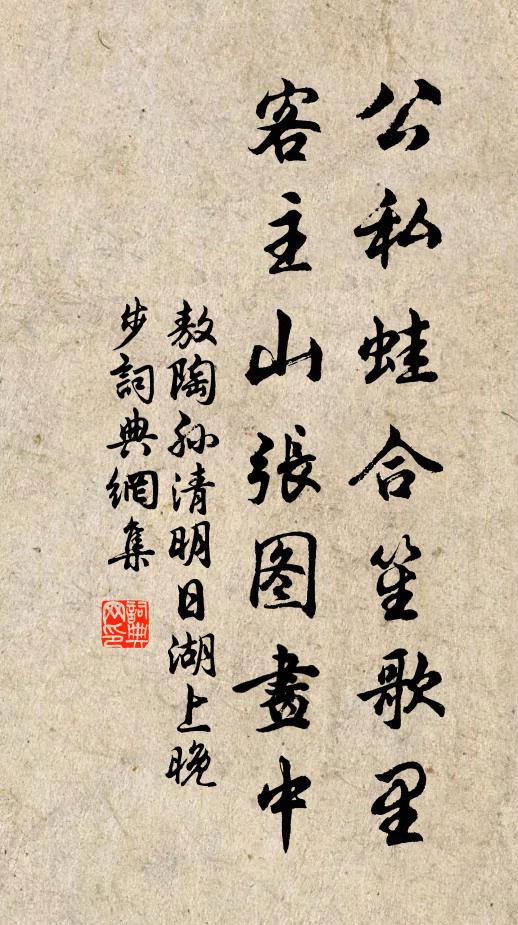 公私蛙合笙歌里
客主山張图畫中
敖陶孙清明日湖上晚
步詞典網集
詞典
网印